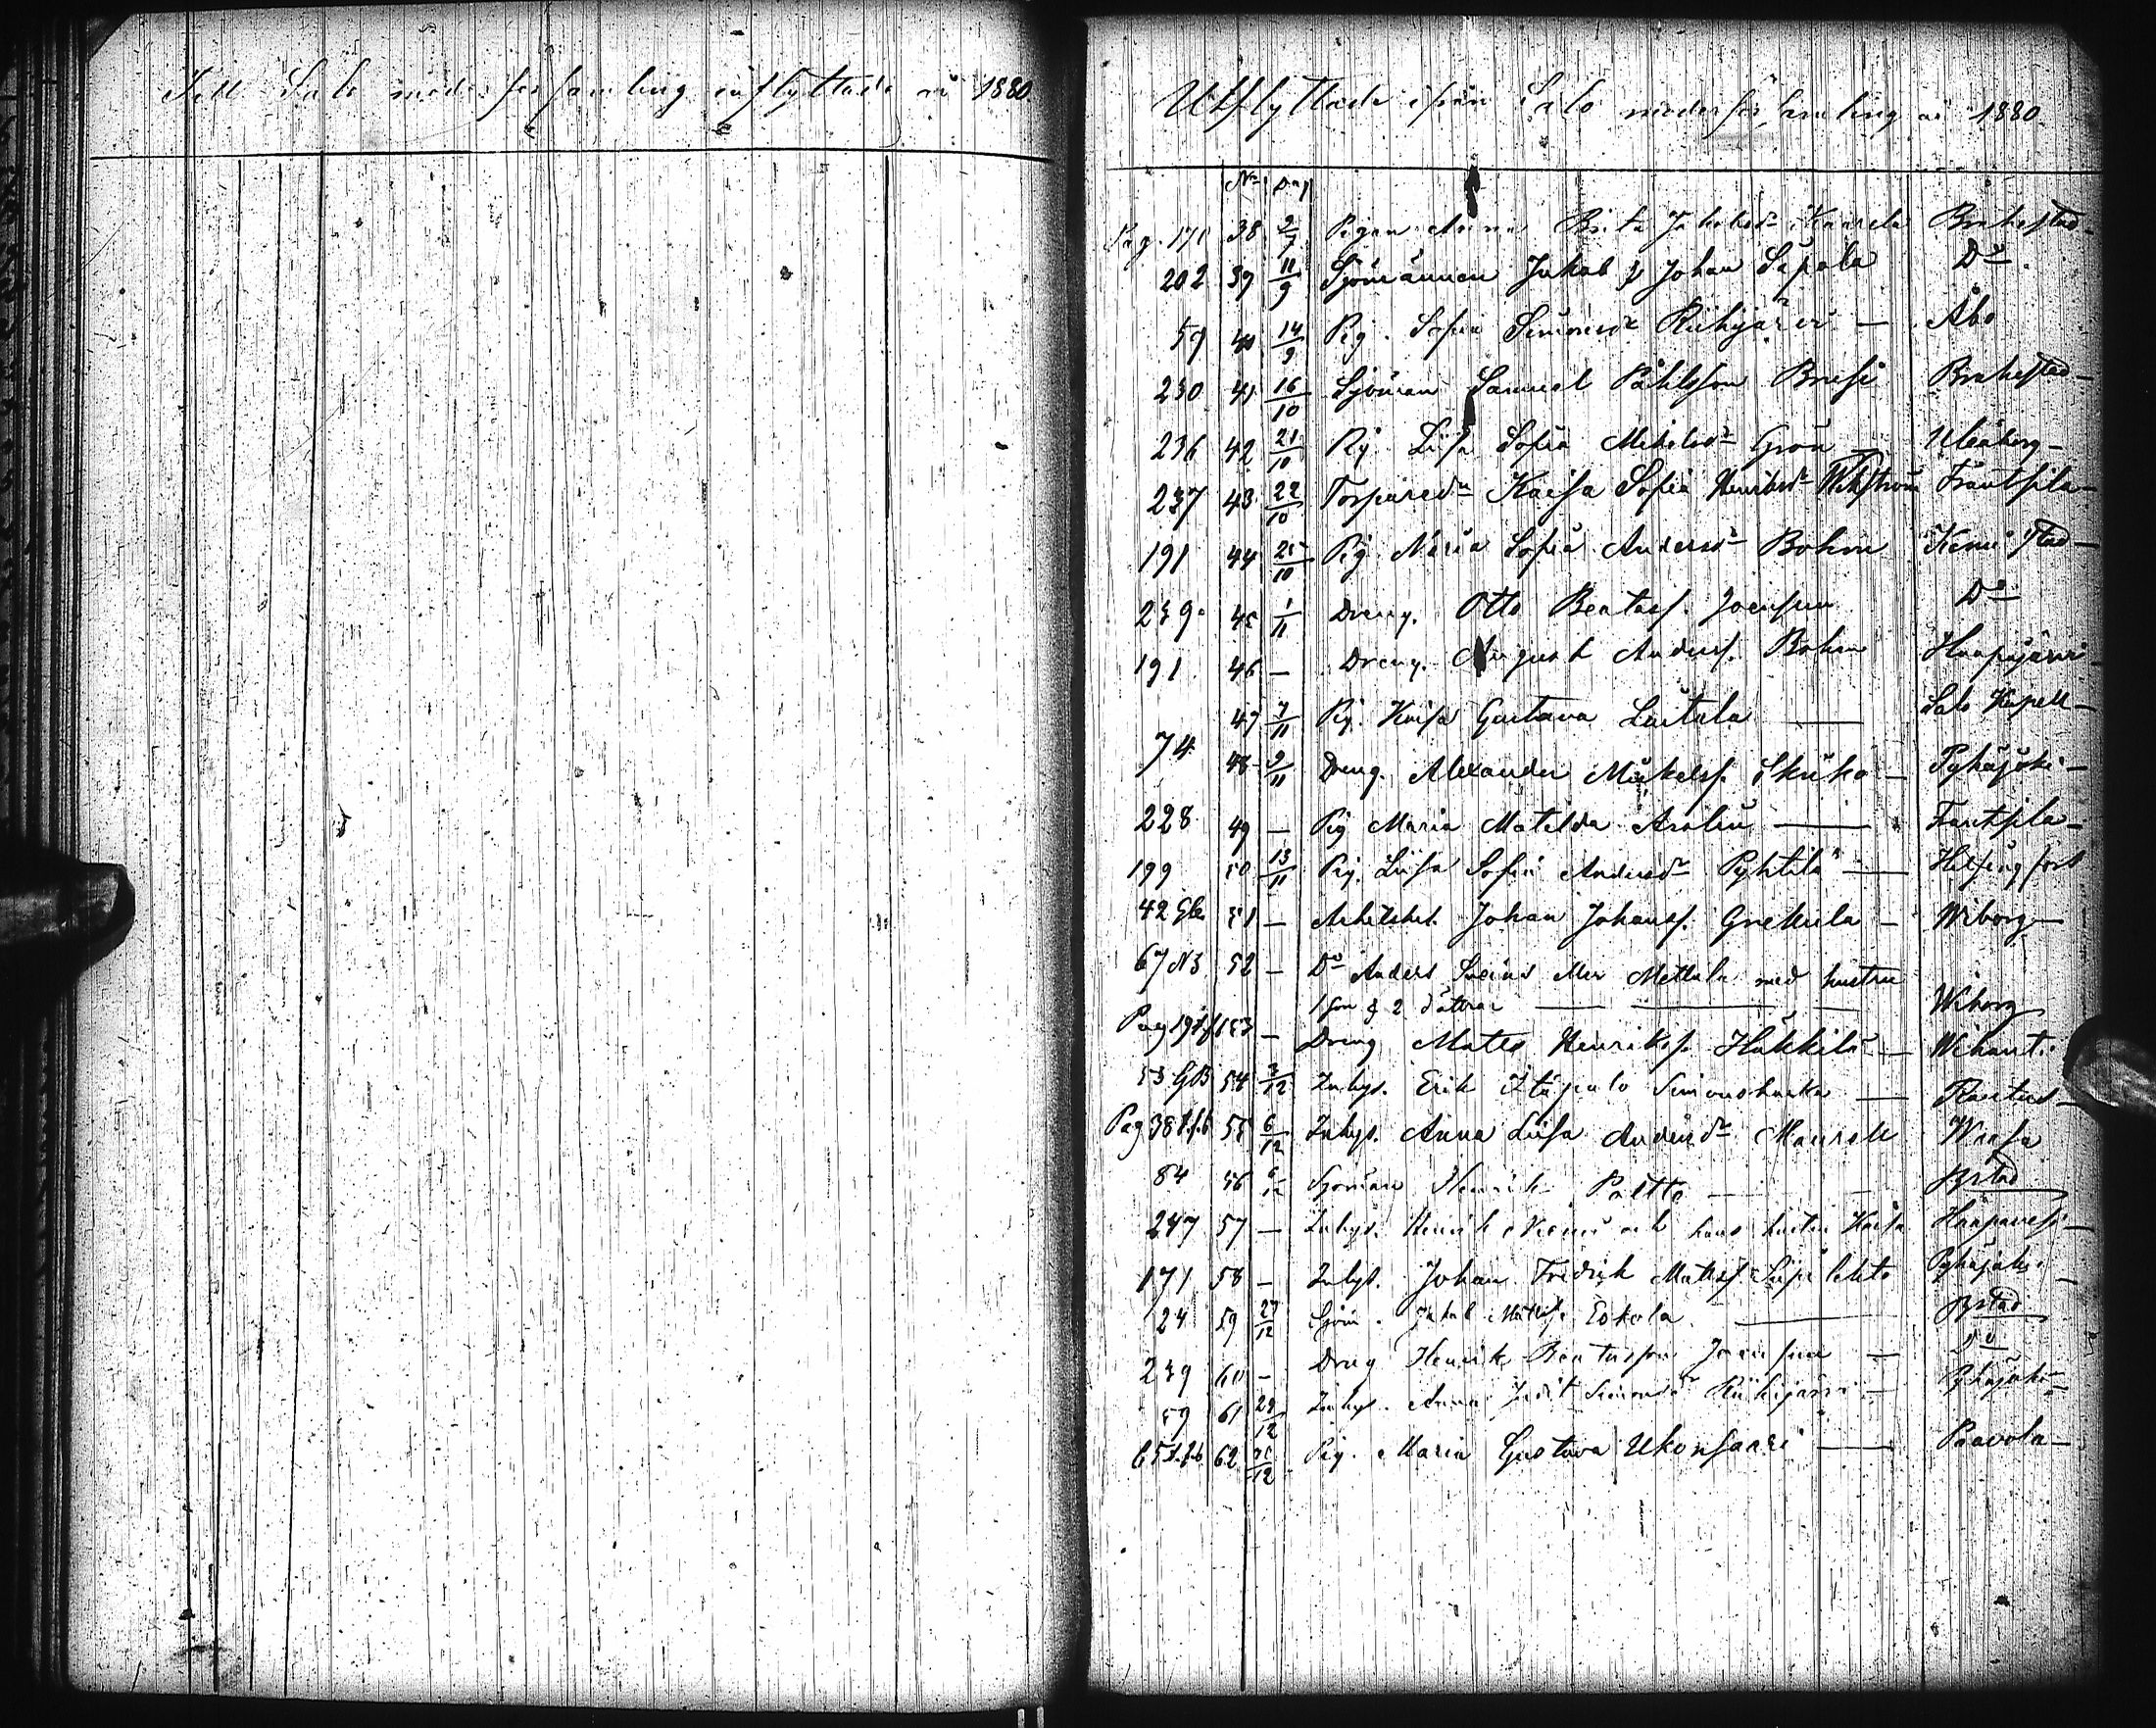 Till Salo moderförsamling inflyttade år 1880.
Utflyttade ifrån Salo moderförsamling år 1880.
No Dag
Pag. 171 38 2/7 Pigan Anna Brita Jakobsdr Brahestad
202 39 11/9 Sjömannen Jakob Johan Sipola Do
59 40 14/9 Pig. Sofia Simonsdr Riihijärvi — Åbo
230 41 16/10 Sjöman Samuel Påhlsson Brahestad
236 42 21/10 Pig. Liisa Sofia Mickelsdr Grön Uleåborg
237 43 22/10 Kaisa Sofia Henriksdr Wikström Frantsila
191 44 25/10 Pig. Maria Sofia Andersdr Bohm Kemi stad
239 45 1/11 Dreng. Otto Beatass. Joensuu Do
191 46 — Dreng. August Anderss. Bohm Haapajärvi
47 7/11 Pig. Kaisa Gustava Salo Kapell
74 48 9/11 Dreng. Alexander Mickelss. — Pyhäjoki
228 49 — Pig Maria Matilda — Frantsila
199 50 13/11 Pig. Liisa Sofia Andersdr Pyhtilä — Helsingfors
42 51 — Arbetskl. Johan Johanss. Grekula — Wiborg
67 52 — Do Anders Mettala med hustru
1 son & 2 döttrar — Wiborg
Pag 53 — Dreng Matts Henrikss. Häkkilä — Wihanti
53 GB 54 3/12 Inhys. Erik Simonshuka —
Pag 38 55 6/12 Inhys. Anna Liisa Andersdr Wasa
84 56 Sjöman Henrik Paltto — Bstad
247 57 — Inhys. Henrik och hans hustru Kaisa Haapavesi
171 58 — Inhys. Johan Fredrik Mattss. Pyhäjoki
24 59 27/12 Sjöm. Jakob Mattss. Eskola — Bstad
239 60 — Dreng Henrik Beatasson Joensuu — Do
59 61 29/12 Inhys. Anna Simonsdr Riihijärvi — Pyhäjoki
62 Pig. Maria Gustava Ukonsaari — Paavola